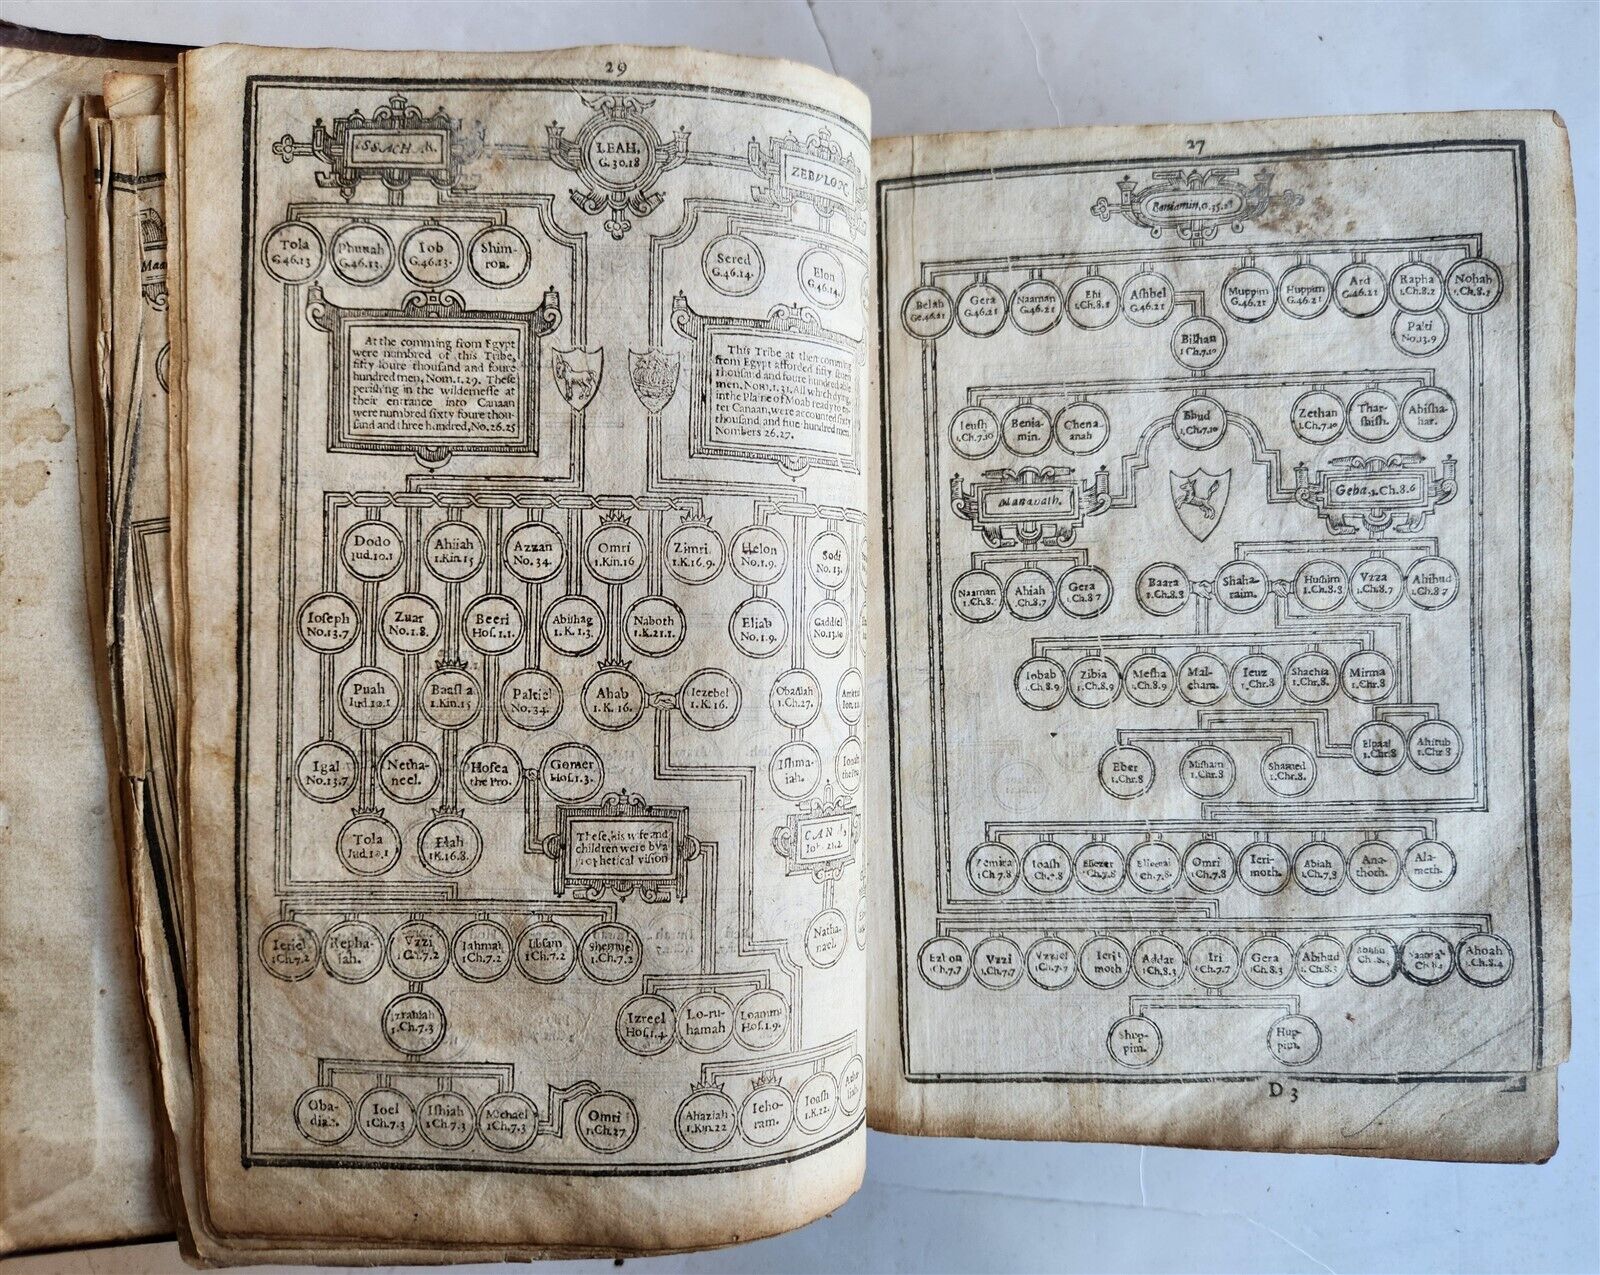 29
ISSACHAR.
LEAH.
G.30.18
ZEBVLON.
Tola
G.46.13
Phuuah
G.46.13.
Iob
G.46.13.
Shim-
ron.
Sered
G.46.14.
Elon
G.46.14.
At the comming from Egypt
were numbred of this Tribe,
fifty foure thousand and foure
hundred men, Nom.1.29. These
perishing in the wildernesse at
their entrance into Canaan
were numbred sixty foure thou-
sand and three hundred, No.26.25
This Tribe at their comming
from Egypt afforded fifty seven
thousand and foure hundred able
men, Nom.1.31. All which dying,
in the Plaine of Moab ready to en-
ter Canaan, were accounted sixty
thousand, and five hundred men.
Nombers 26.27.
Dodo
Iud.10.1
Ahiiah
1.Kin.15
Azzan
No.34.
Omri
1.Kin.16
Zimri.
1.K.16.9.
Helon
No.1.9.
Sodi
No.13.
Ioseph
No.13.7
Zuar
No.1.8.
Beeri
Hos.1.1.
Abishag
1.K.1.3.
Naboth
1.K.21.1.
Eliab
No.1.9.
Gaddiel
No.13.10
Puah
Iud.10.1
Baasha
1.Kin.15
Paltiel
No.34.
Ahab
1.K.16.
Iezebel
1.K.16.
Obadiah
1.Ch.27.
Igal
No.13.7
Netha-
neel.
Hosea
the Pro.
Gomer
Hos.1.3.
Ishma-
iah.
Tola
Iud.10.1
Elah
1K.16.8.
These, his wife and
children were by a
prophetical vision
CANA,
Ioh.21.2
Ieriel
1Ch.7.2
Repha-
iah.
Vzzi
1Ch.7.2
Iahmai
1Ch.7.2
Iibsam
1Ch.7.2
Shemuel
1.Ch.7.2
Natha-
nael.
Izrahiah
1.Ch.7.3
Izreel
Hos.1.4.
Lo-ru-
hamah
Loammi
Hos.1.9.
Oba-
diah.
Ioel
1Ch.7.3
Ishiah
1Ch.7.3
Michael
1Ch.7.3
Omri
1Ch.27
Ahaziah
1.Kin.22
Ieho-
ram.
Ioash
1.K.22.
27
Beniamin, G.35.18
Belah
Ge.46.21
Gera
G.46.21
Naaman
G.46.21
Ehi
1.Ch.8.1
Ashbel
G.46.21
Muppim
G.46.21
Huppim
G.46.21
Ard
G.46.21
Rapha
1.Ch.8.2
Nohah
1.Ch.8.2
Bilhan
1 Ch.7.10
Palti
No.13.9
Ieush
1.Ch.7.10
Benia-
min.
Chena
anah
Ehud
1.Ch.7.10
Zethan
1.Ch.7.10
Thar-
shish.
Ahisha-
har.
Manavath.
Geba, 1.Ch.8.6
Naaman
1.Ch.8.
Ahiah
1.Ch.8.7
Gera
1.Ch.8.7
Baara
1.Ch.8.8
Shaha-
raim.
Hushim
1.Ch.8.8
Vzza
1.Ch.8.7
Ahihud
1.Ch.8.7
Iobab
1.Ch.8.9
Zibia
1.Ch.8.9
Mesha
1.Ch.8.9
Mal-
cham.
Ieuz
1.Chr.8
Shachia
1.Chr.8.
Mirma
1.Chr.8
Eber
1.Chr.8
Misham
1.Chr.8
Shamed
1.Chr.8.
Elpaal
1.Chr.8
Ahitub
1.Chr.8
Zemira
1Ch.7.8
Ioash
1.Ch.7.8
Eliezer
1Ch.7.8
Elioenai
1Ch.7.8.
Omri
1.Ch.7.8
Ieri-
moth.
Abiah
1.Ch.7.8
Ana-
thoth.
Ala-
meth.
Ezbon
1Ch.7.7
Vzzi
1.Ch.7.7
Vzziel
1.Ch.7.7
Ieri-
moth
Addar
1.Ch.8.3
Iri
1.Ch.7.7
Gera
1.Ch.8.3
Abihud
1.Ch.8.3
Ahoah
1.Ch.8.4
Shup-
pim.
Hup-
pim.
D 3